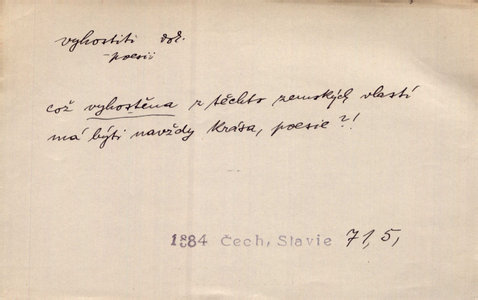 vyhostiti dok.
poesii
což vyhostěna z těchto zemských vlastí
má býti navždy krása, poesie?!
1884 Čech, Slavie 71, 5,